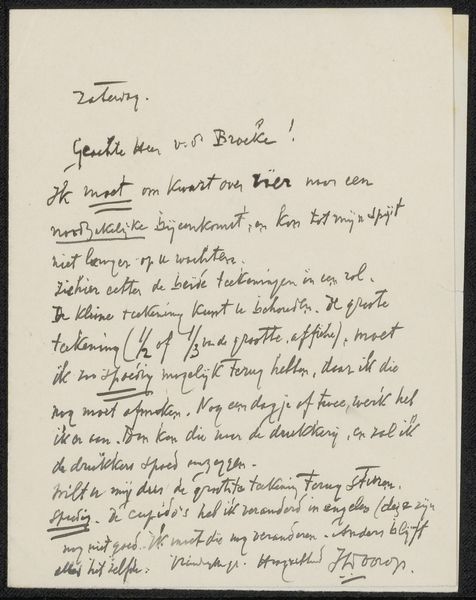 Zaterdag.
Geachte Heer v.d. Broeke!
Ik moet om kwart over vier naar een
noodzakelijke bijeenkomst, en kon tot mijn spijt
niet langer op u wachten.
Ziehier echter de beide teekeningen in een rol.
De kleine teekening kunt u behouden. De groote
teekening (1/2 of 1/3 van de grootte, affiche), moet
ik zoo spoedig mogelijk terug hebben, daar ik die
nog moet afmaken. Nog een dagje of twee, werk heb
ik er aan. Dan kan die naar de drukkerij, en zal ik
de drukkers spoed aanzeggen.
Wilt u mij dus de grootste teekening terug sturen.
Spoedig. De cupido's heb ik veranderd in engelen (deze zijn
nog niet goed. Ik moet die nog veranderen. Anders blijft
alles het zelfde. Hoogachtend JThToorop.